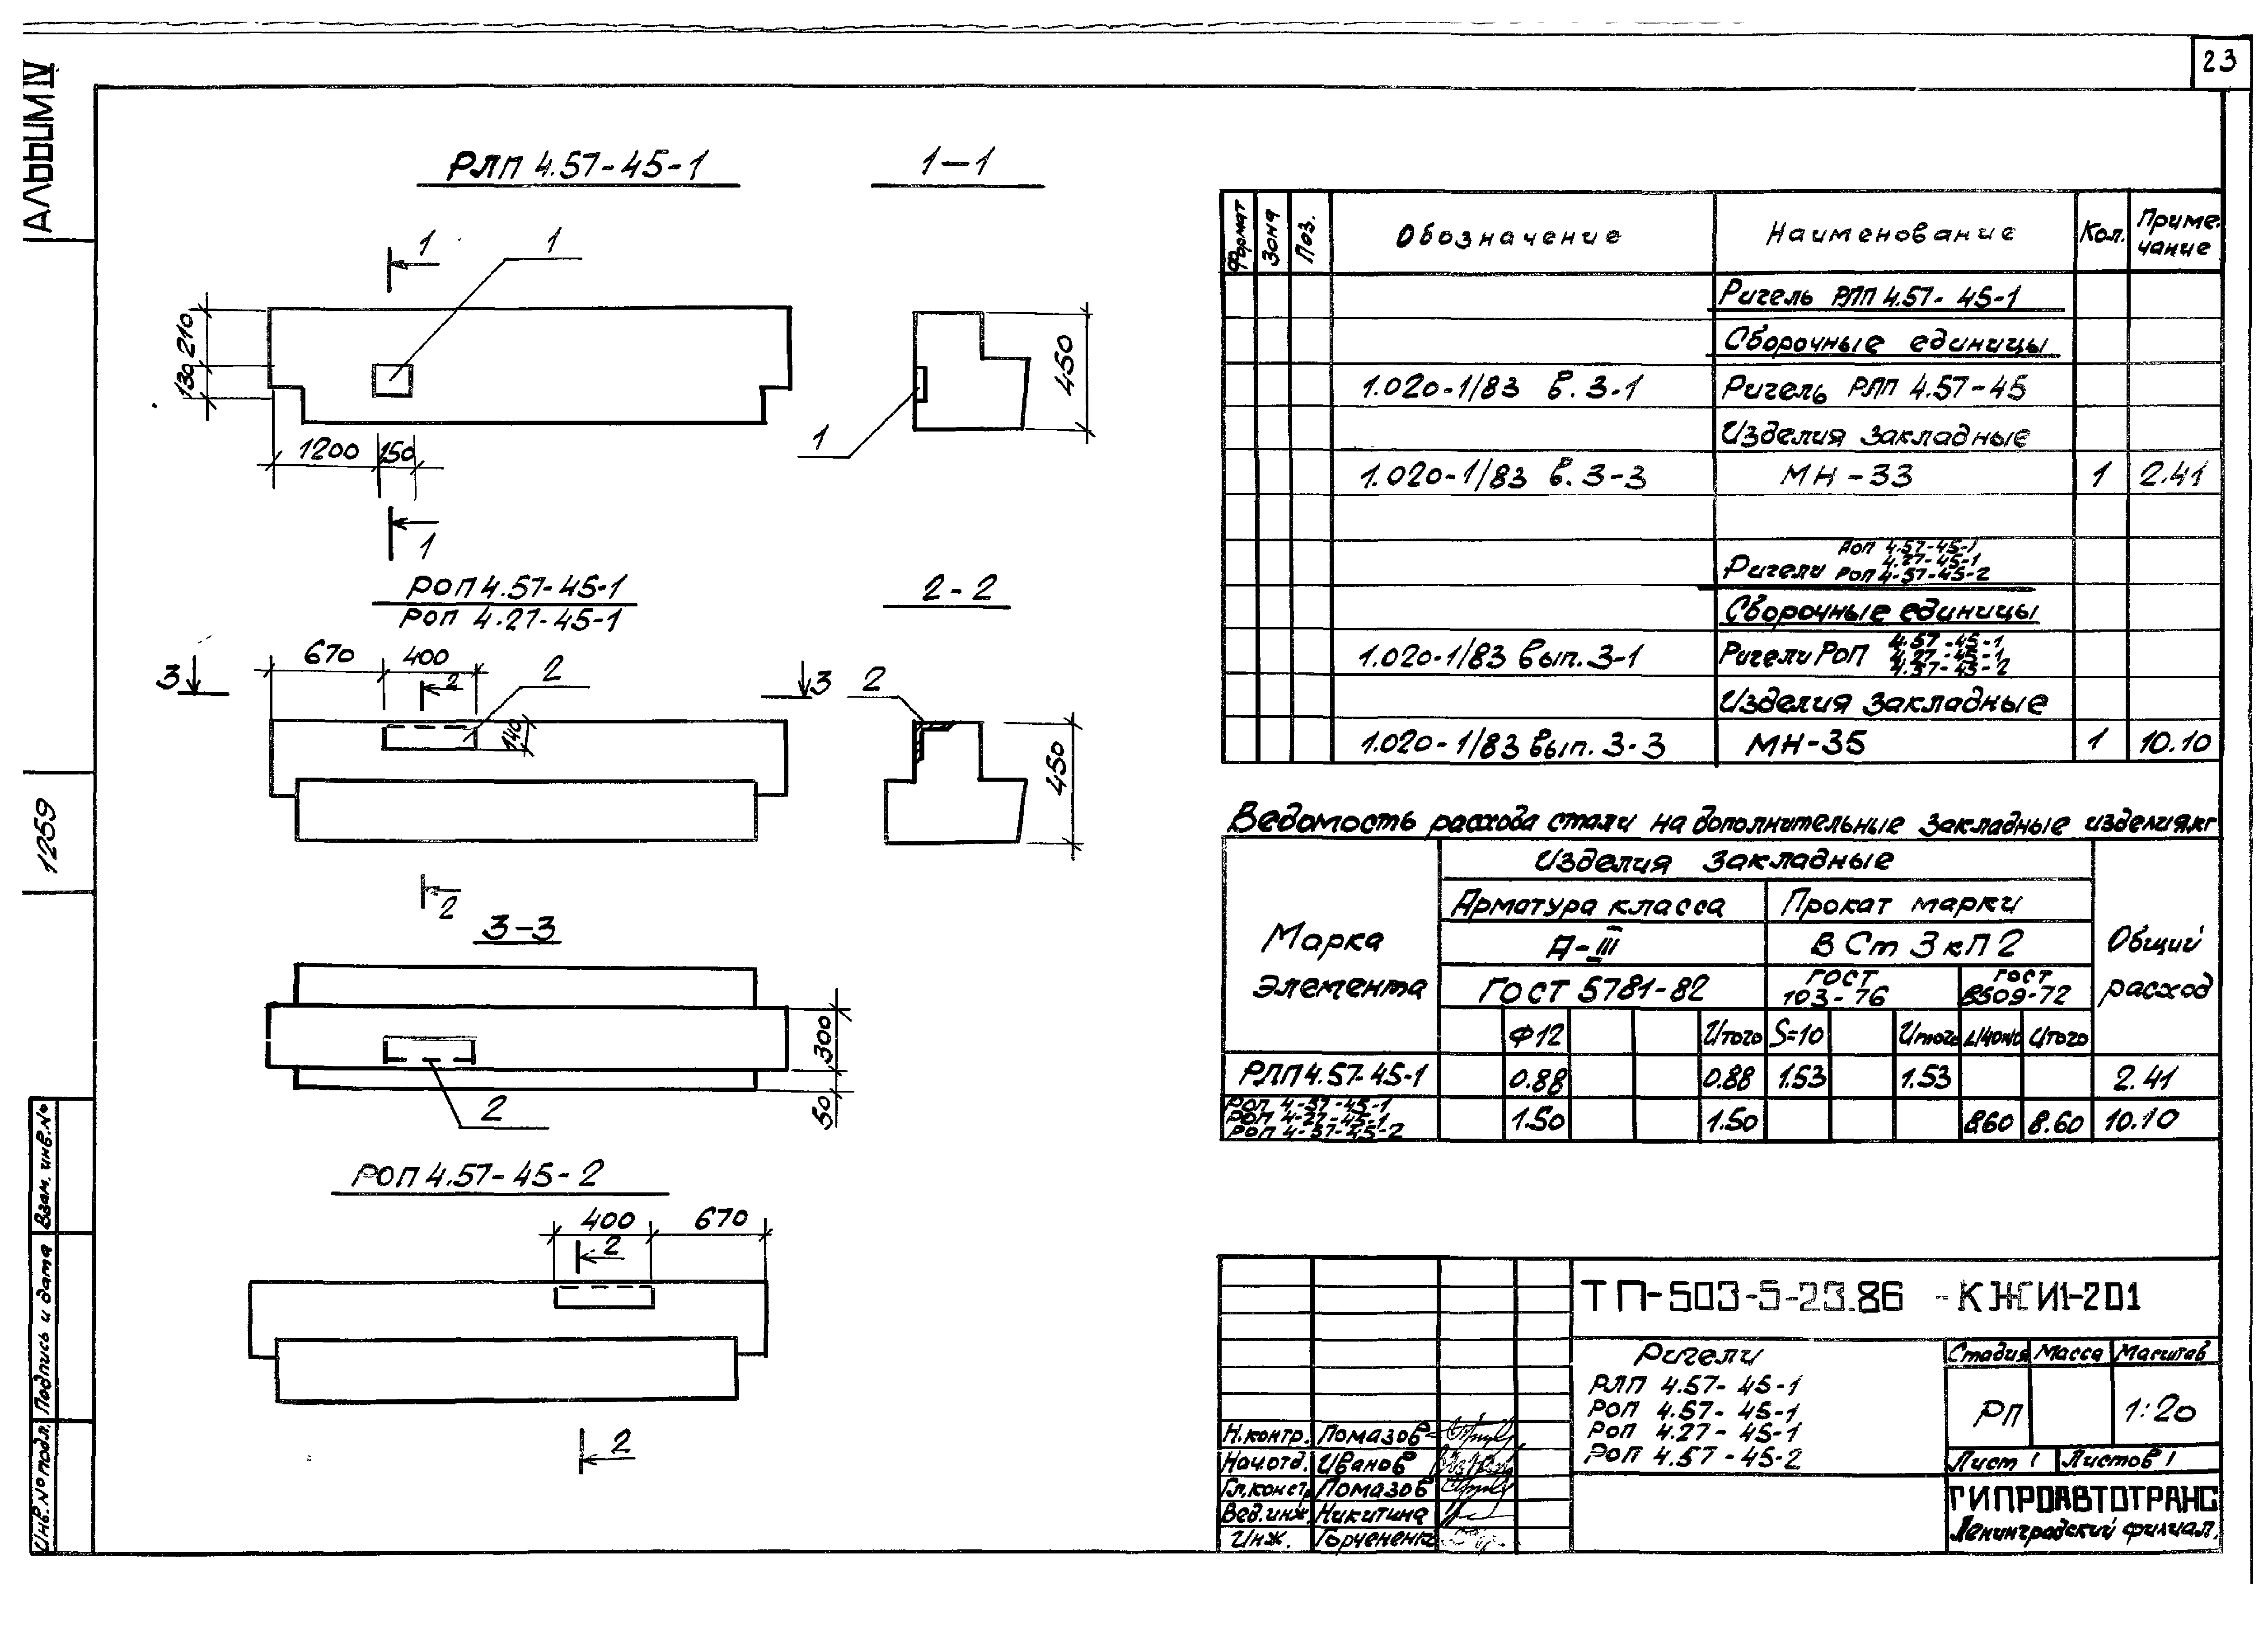 23
АЛЬБОМ IV
1259
Взам. инв. №
Подпись и дата
Инв. № подл.
РЛП 4.57-45-1
1-1
1
1
210
130
1200
150
1
450
1
РОП 4.57-45-1
РОП 4.27-45-1
2-2
670
400
2
3
2
3
2
140
450
2
3-3
300
50
2
РОП 4.57-45-2
400
670
2
2
Формат Зона Поз. Обозначение Наименование Кол. Примечание
Ригель РЛП 4.57-45-1
Сборочные единицы
1.020-1/83 в. 3-1 Ригель РЛП 4.57-45
Изделия закладные
1.020-1/83 в. 3-3 МН-33 1 2.41
РОП 4.57-45-1
4.27-45-1
Ригели РОП 4-57-45-2
Сборочные единицы
4.57-45-1
1.020-1/83 вып. 3-1 Ригели РОП 4.27-45-1
4.57-45-2
Изделия закладные
1.020-1/83 вып. 3-3 МН-35 1 10.10
Ведомость расхова стали на дополнительные закладные изделия,кг
Марка элемента
Изделия закладные
Общий расход
Арматура класса Прокат марки
А-III ВСт3кп2
ГОСТ 5781-82 ГОСТ 103-76 ГОСТ 8509-72
Ф12 Итого S=10 Итого Итого
РЛП 4.57-45-1 0.88 0.88 1.53 1.53 2.41
РОП 4-57-45-1
РОП 4-27-45-1 1.50 1.50 8.60 8.60 10.10
РОП 4-57-45-2
ТП-503-5-23.86 -КЖИ1-201
Ригели
РЛП 4.57-45-1
РОП 4.57-45-1
РОП 4.27-45-1
РОП 4.57-45-2
Стадия Масса Масштаб
РП 1:20
Лист 1 Листов 1
ГИПРОАВТОТРАНС
Ленинградский филиал.
Н.контр. Помазов
Нач.отд. Иванов
Гл.констр Помазов
Вед.инж. Никитина
Инж. Горчененко